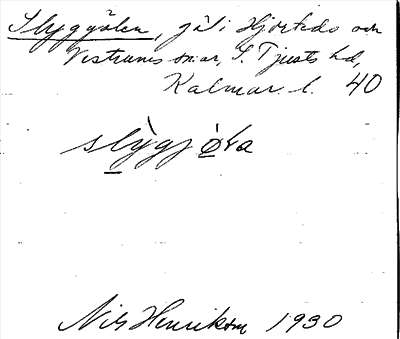 Skyggölen, göl i Hjorted o och
Västrums snar, S. Tjusts hd,
Kalmar l. 40
slỳgjøļa
Nils Henrikson 1930